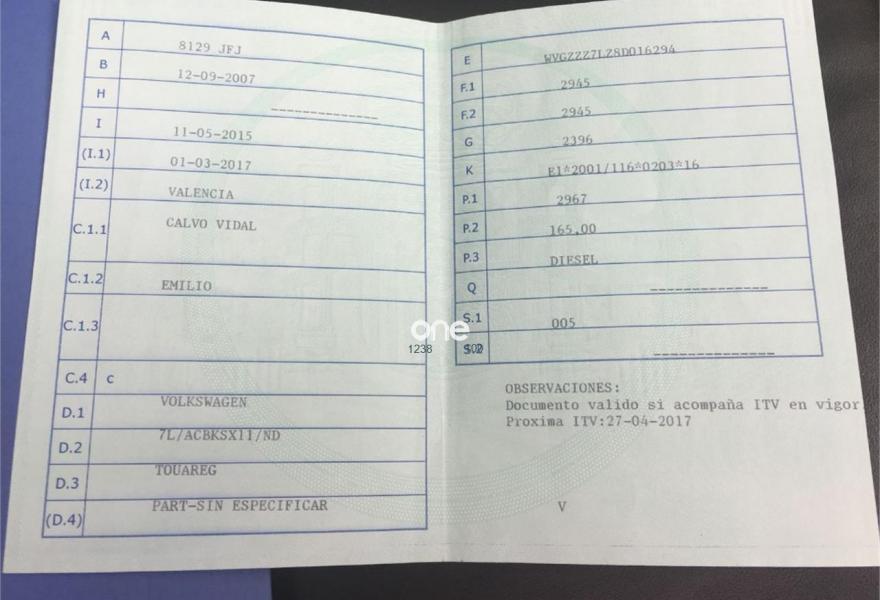 A 8129 JFJ
B 12-09-2007
H --------------
I 11-05-2015
(I.1) 01-03-2017
(I.2) VALENCIA
C.1.1 CALVO VIDAL
C.1.2 EMILIO
C.1.3
C.4 c
D.1 VOLKSWAGEN
D.2 7L/ACBKSX11/ND
D.3 TOUAREG
(D.4) PART-SIN ESPECIFICAR
E WVGZZZ7LZ8D016294
F.1 2945
F.2 2945
G 2396
K E1*2001/116*0203*16
P.1 2967
P.2 165,00
P.3 DIESEL
Q --------------
S.1 005
S.2 --------------
OBSERVACIONES:
Documento valido si acompaña ITV en vigor
Proxima ITV:27-04-2017
V
one
1238